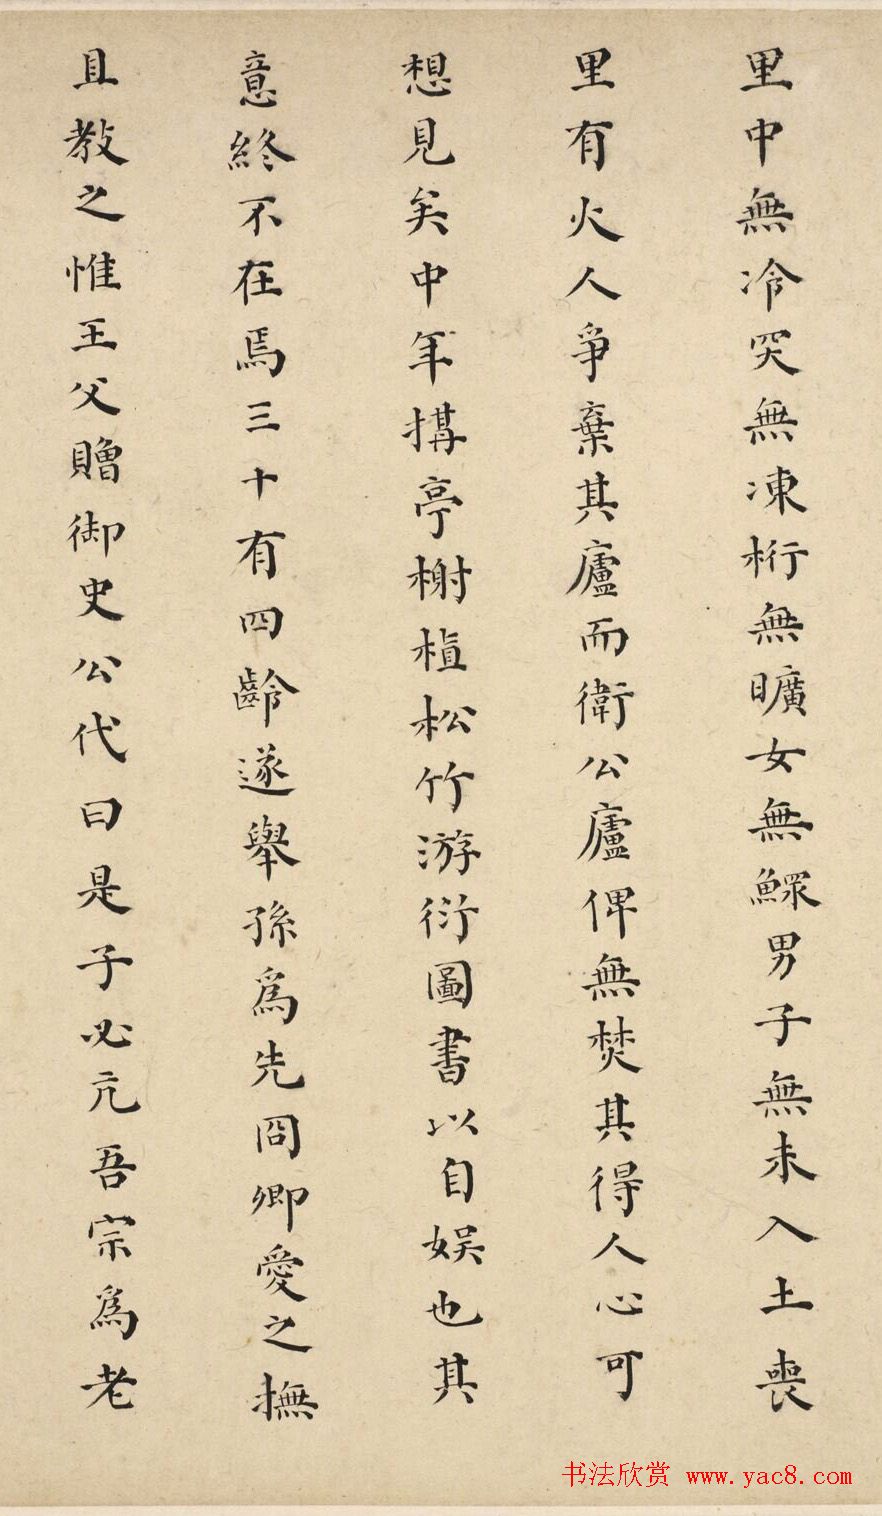 里中無冷突無凍桁無曠女無鰥男子無未入土喪
里有火人爭棄其廬而衛公廬俾無焚其得人心可
想見矣中年搆亭榭植松竹游衍圖書以自娱也其
意終不在焉三十有四齡遂舉孫爲先冏卿愛之撫
且教之惟王父贈御史公代曰是子必亢吾宗爲老
书法欣赏 www.yac8.com